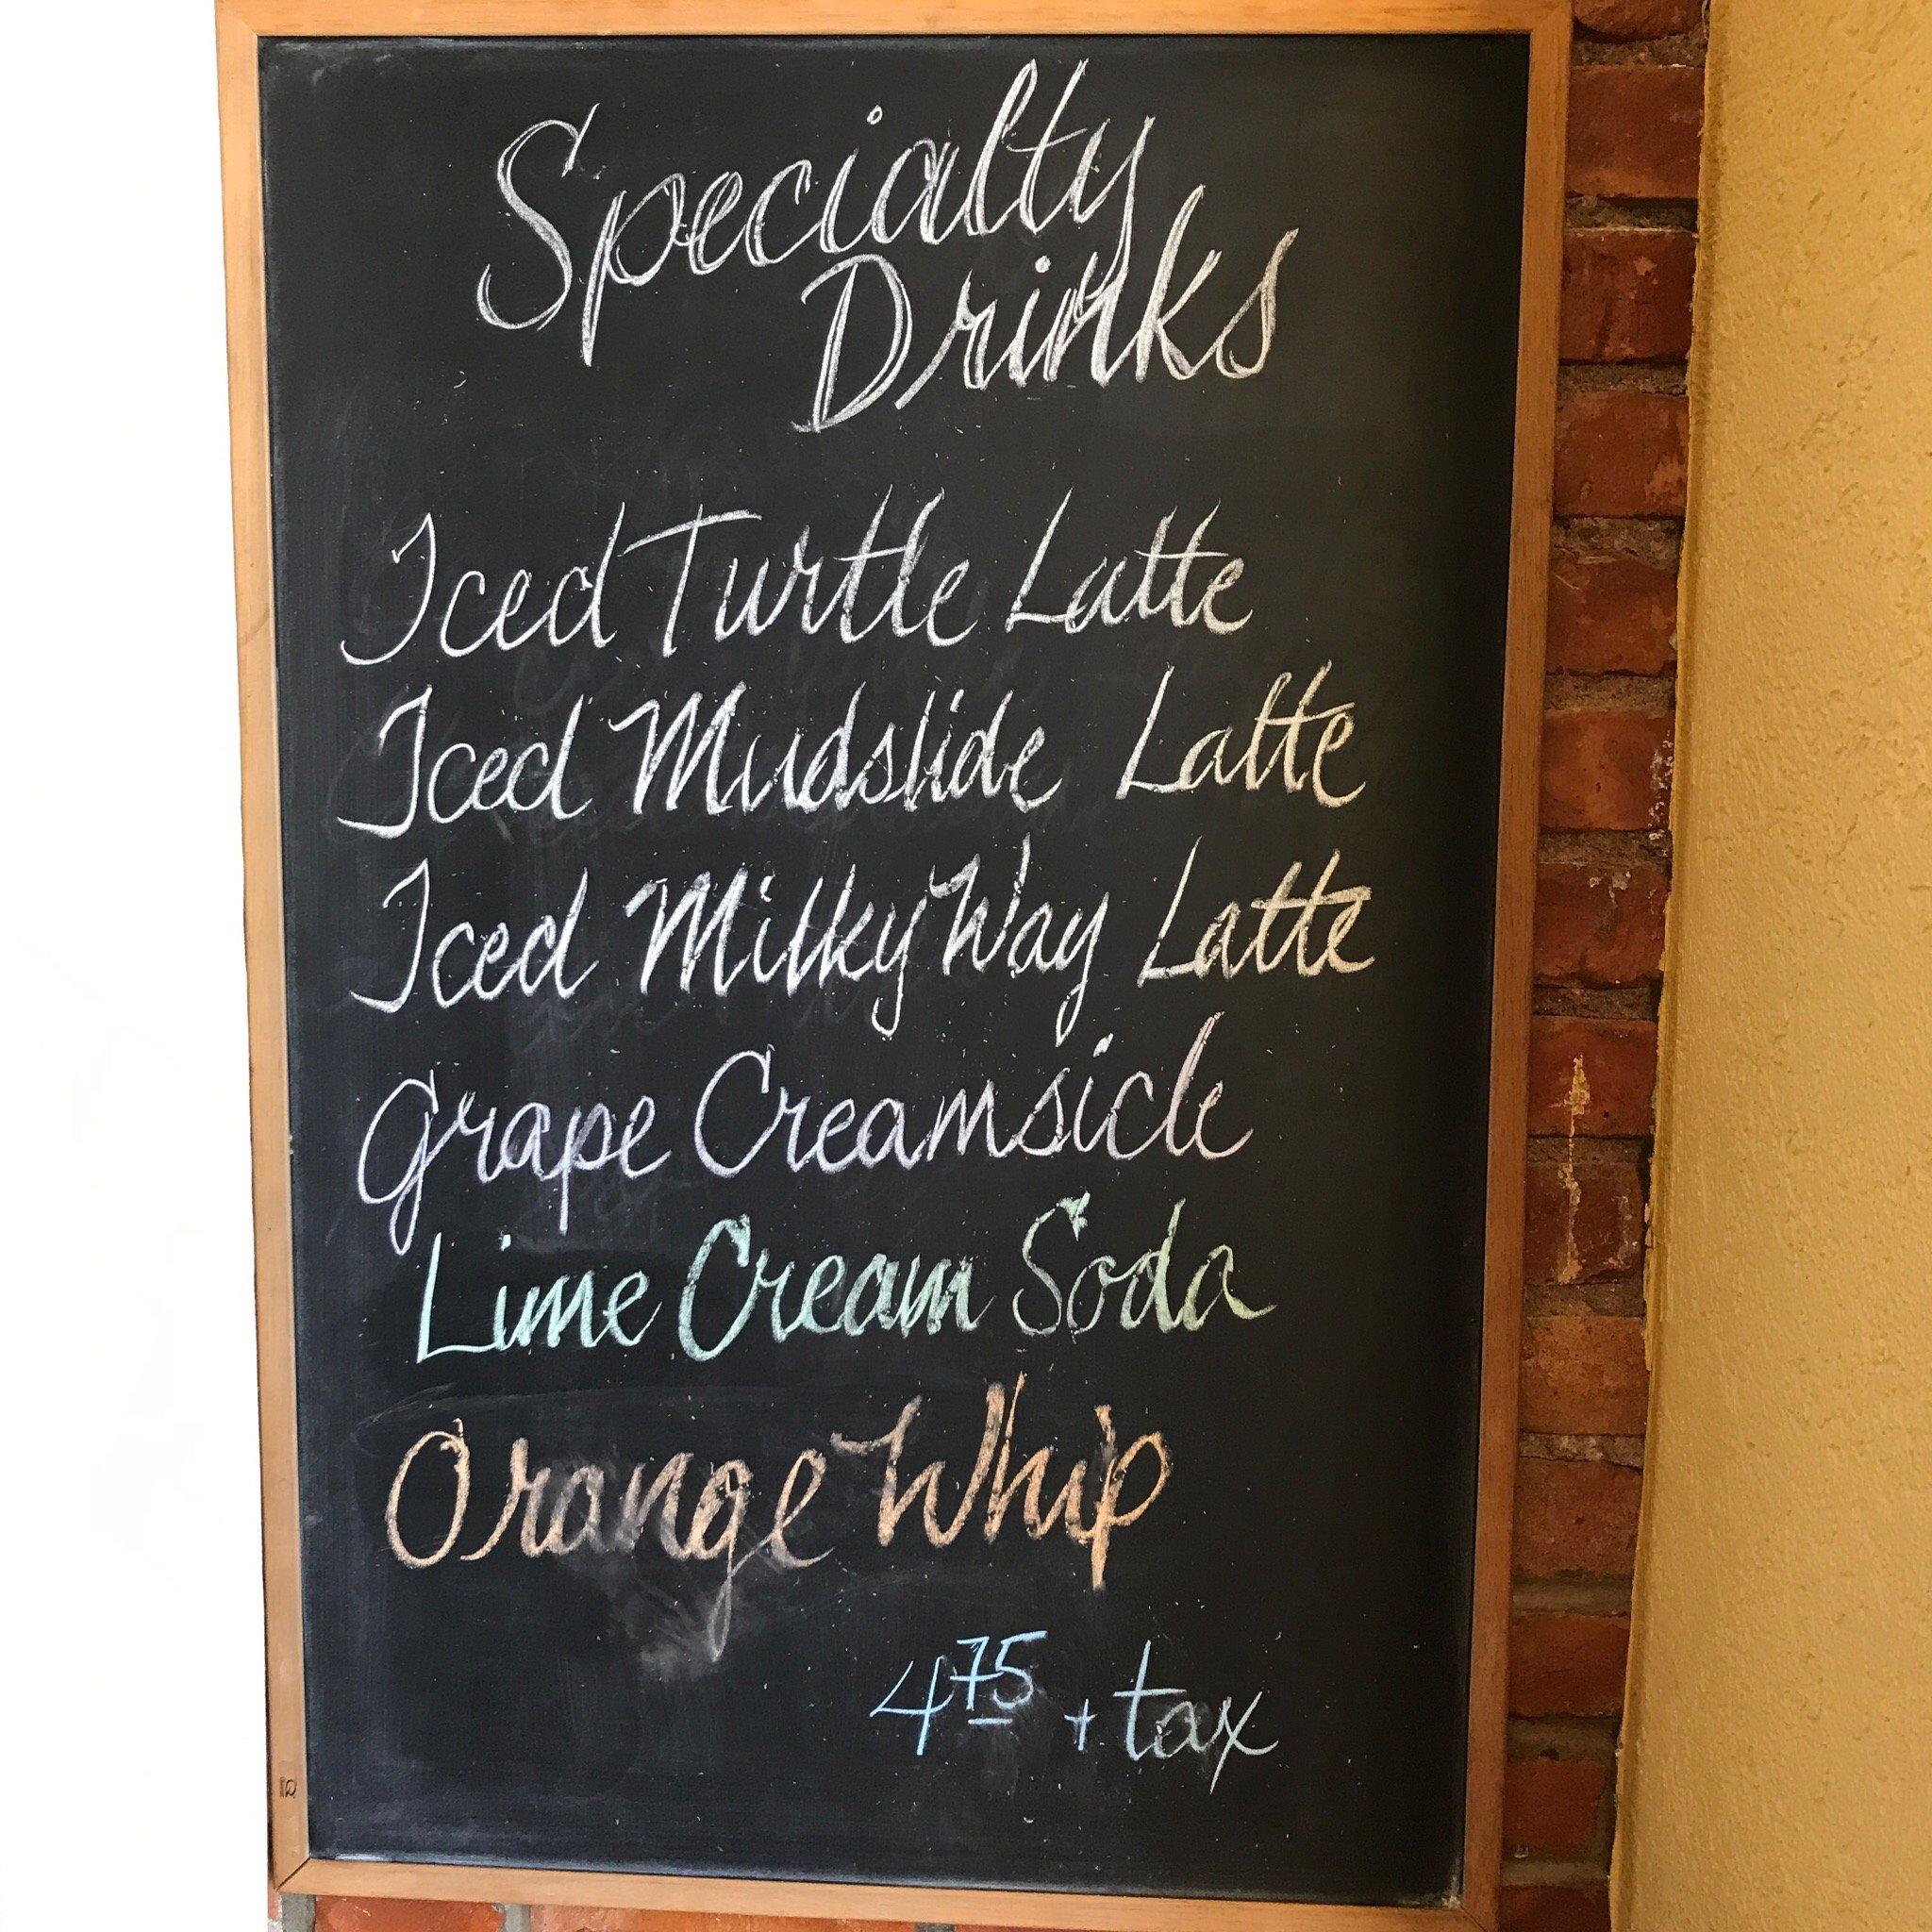 Specialty
Drinks
Iced Turtle Latte
Iced Mudslide Latte
Iced Milky Way Latte
Grape Creamsicle
Lime Cream Soda
Orange Whip
4 75 + tax